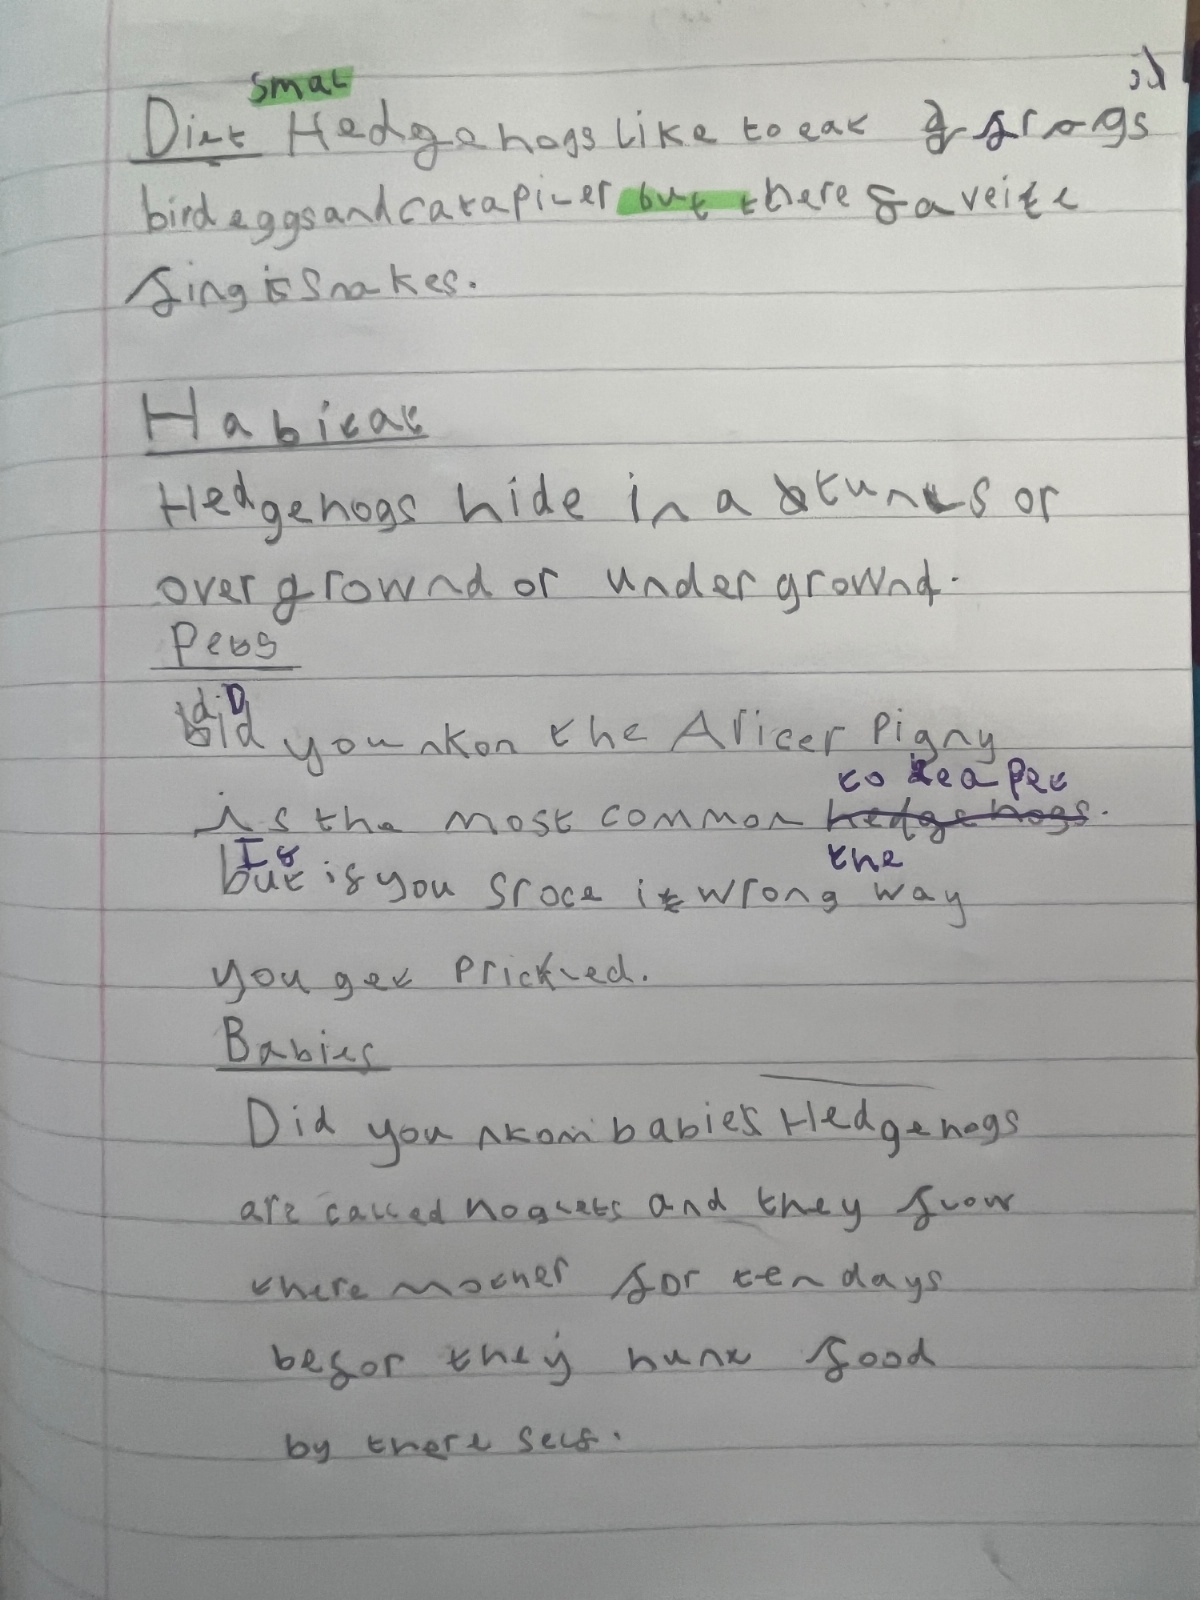 smal
Diet Hedgehogs like to eat frogs
bird eggs and catapiler but there faveite
fing is Snakes.
Habitat
Hedgehogs hide in a tunls or
over grownd or under grownd.
Pets
Did you nkon the Africer Pigny
to be a Pet
is the most common hedgehogs.
If the
but if you stroce it wrong way
you get Prickled.
Babies
Did you nkom babies Hedgehogs
are called hoglets and they fvow
there mother for ten days
befor they hunt food
by there self.